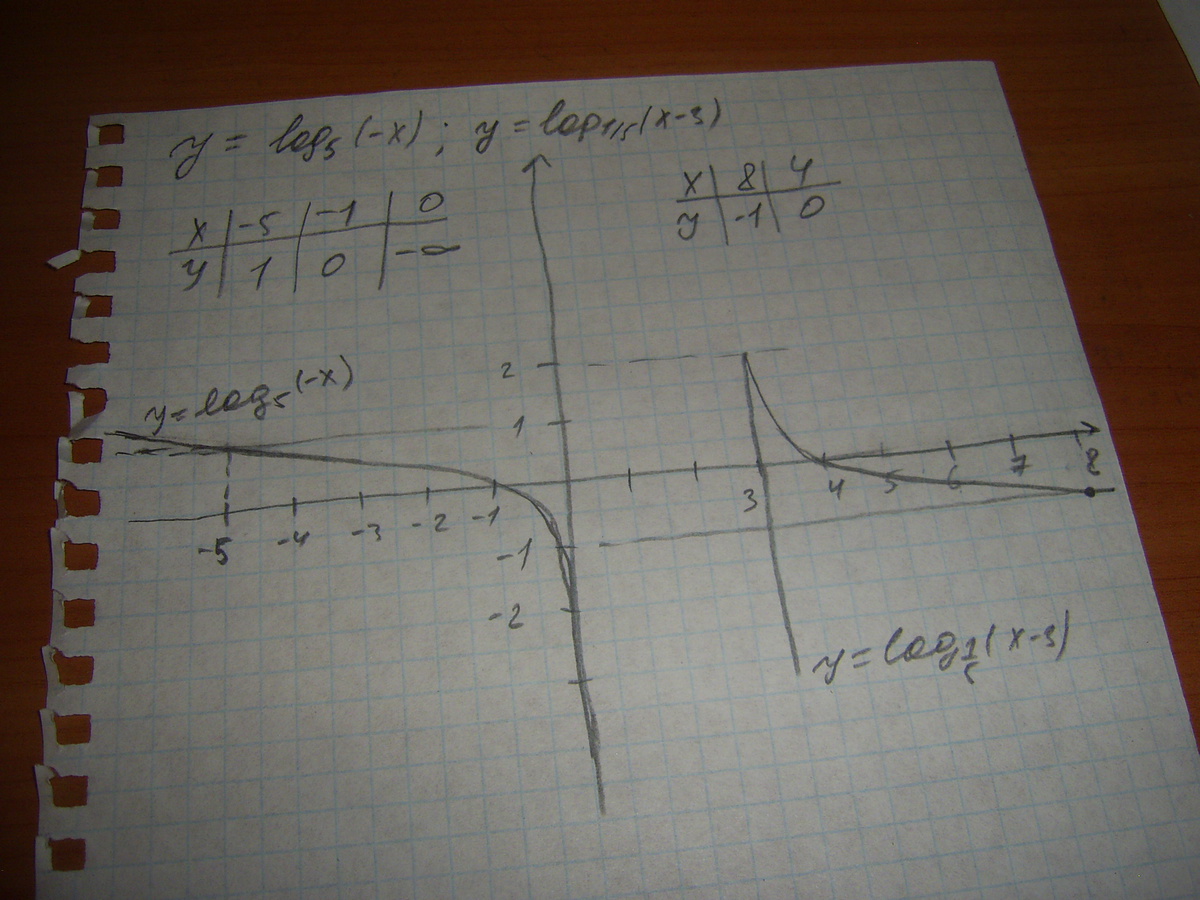 y = log₅(-x); y = log₁/₅(x-3)
x | -5 | -1 | 0
y | 1 | 0 | -∞
x | 8 | 4
y | -1 | 0
2
1
y = log₅(-x)
-5 -4 -3 -2 -1 3 4 5 6 7 8
-1
-2
y = log₁/₅(x-3)